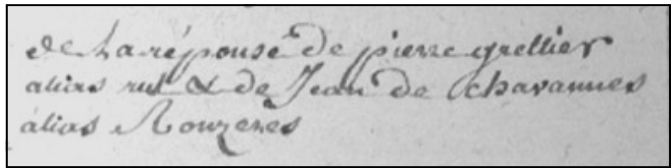 de La réponse de pierre grellier
alias rul & de Jean de Chavannes
alias Rouzeres